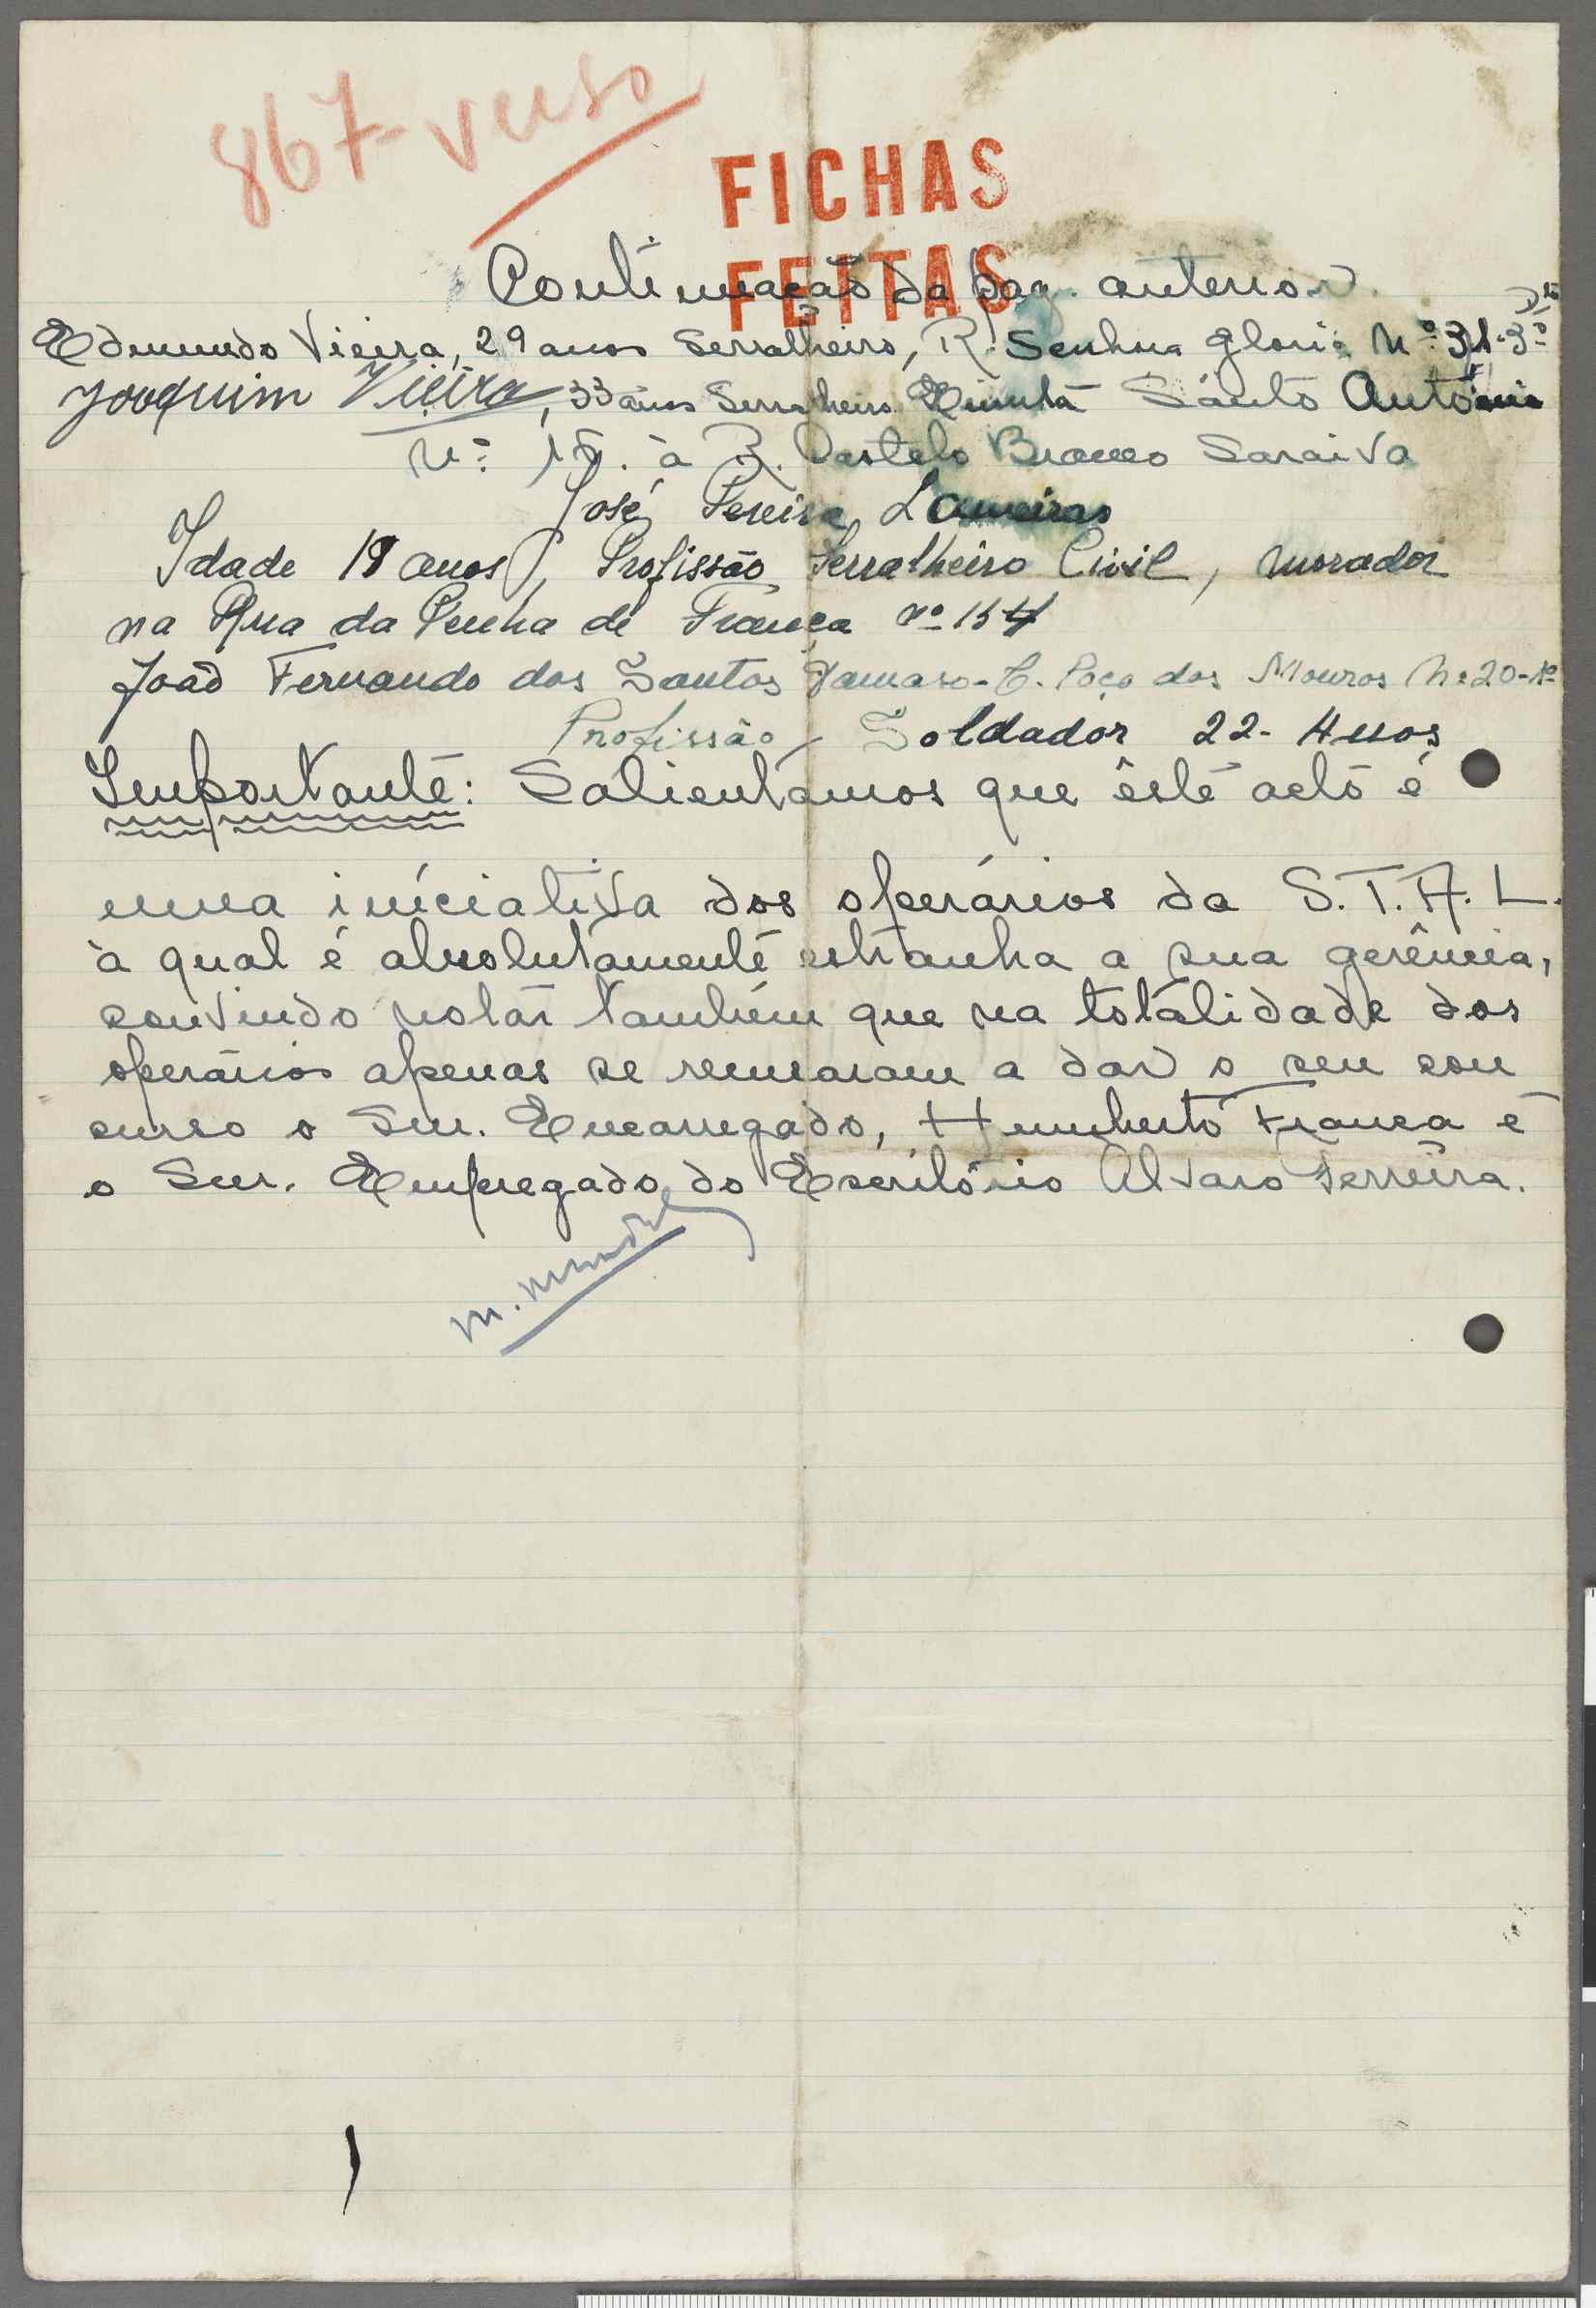 867-verso
FICHAS
FEITAS
Continuação da pag. anterior.
Edmundo Vieira, 29 anos Serralheiro, R. Senhora Gloria Nº 31-3º Dto
Joaquim Vieira, 33 anos Serralheiro Quinta Santo António
Nº à R. Castelo Branco Saraiva
José Pereira Lameiras
Idade 18 anos, Profissão Serralheiro Civil, morador
na Rua da Penha de França nº 154
João Fernando dos Santos Damaso-C. Poço dos Mouros Nº 20-
Profissão Soldador 22- Anos
Importante: Salientamos que êste acto é
uma iniciativa dos operários da S.T.A.L.
à qual é absolutamente estranha a sua gerência,
convindo notar também que na totalidade dos
operários apenas se recusaram a dar o seu con
curso o Snr. Encarregado, Humberto Franca e
o Snr. Empregado do Escritório Alvaro Ferreira.